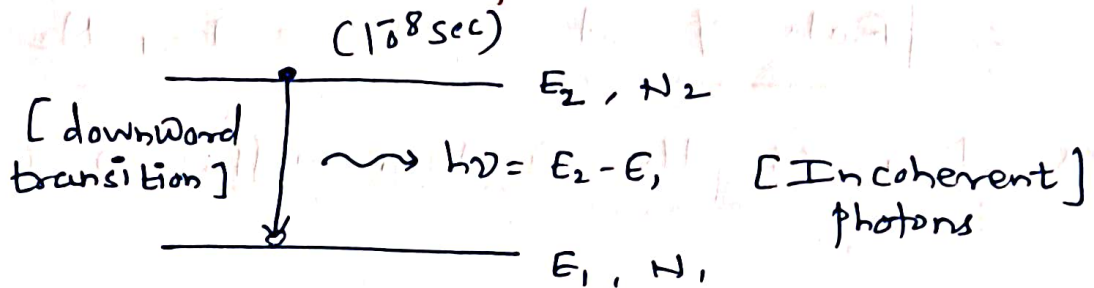 (10⁻⁸ sec)
E₂, N₂
[downward
transition]
hν = E₂ - E₁
[Incoherent]
photons
E₁, N₁